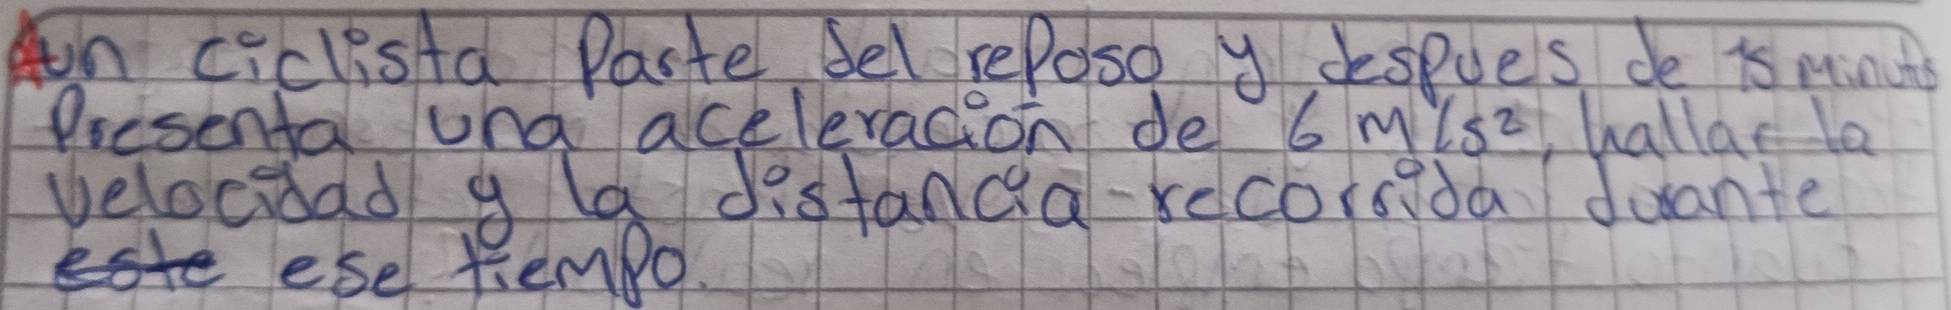 un ciclista Parte del reposo y despues de 15 minutos
Presenta una aceleración de 6 m/s², hallar la
velocidad y la distancia recorrida durante
este ese tiempo.